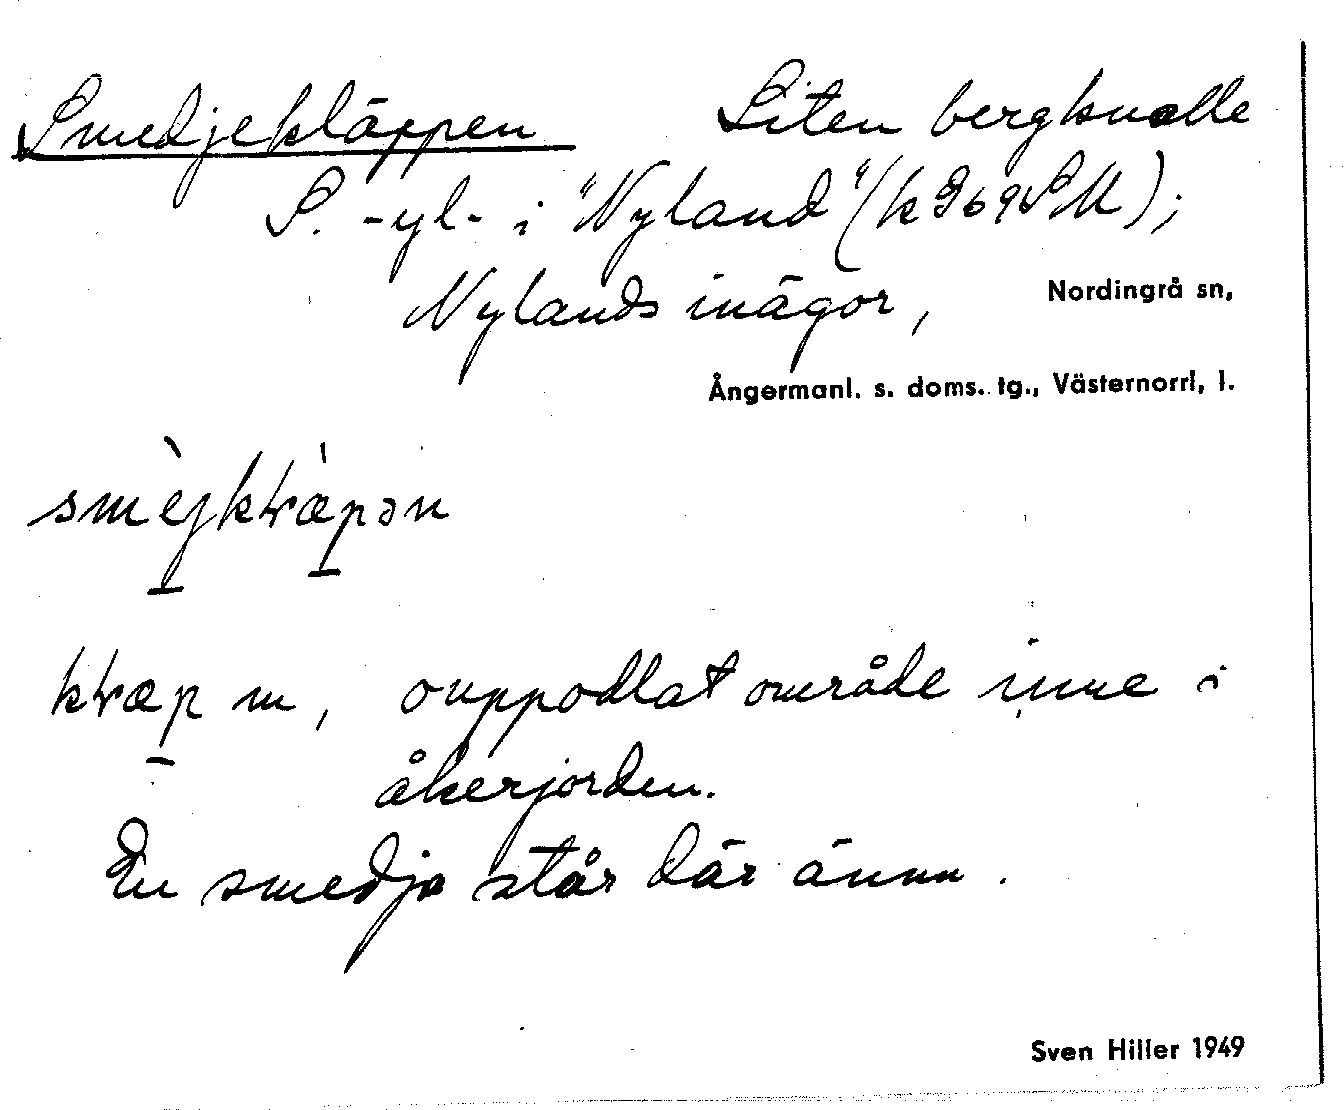 Smedjekläppen Liten bergknalle
S. -yl- i "Nyland" (k 969 SM);
Nylands inägor, Nordingrå sn,
Ångermanl. s. doms. tg., Västernorrl, l.
smèjktræ̀pən
ktræp m, ouppodlat område inne i
åkerjorden.
En smedja står där ännu.
Sven Hiller 1949